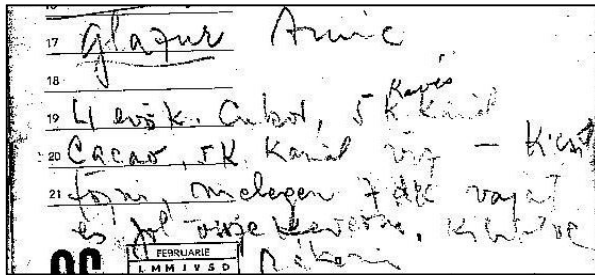 17 glazur Anuic
18
19 4 evők. Cukor, 5 k. Kanál Kavés
20 Cacao, 5 K. Kanál víz – Kicsit
21 főzni, melegen 7 dk vajat
és jól össze keverni, kihűlve
FEBRUARIE rákeni
L M M J V S D